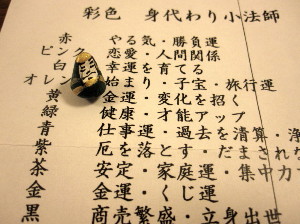 彩色 身代わり小法師
赤 やる気・勝負運
ピンク 恋愛・人間関係
白 幸運を育てる
オレン 始まり・子宝・旅行運
黄 金運・変化を招く
緑 健康・才能アップ
青 仕事運・過去を清算・浄
紫 厄を落とす・だまされ
茶 安定・家庭運・集中力
金 金運・くじ運
黒 商売繁盛・立身出世